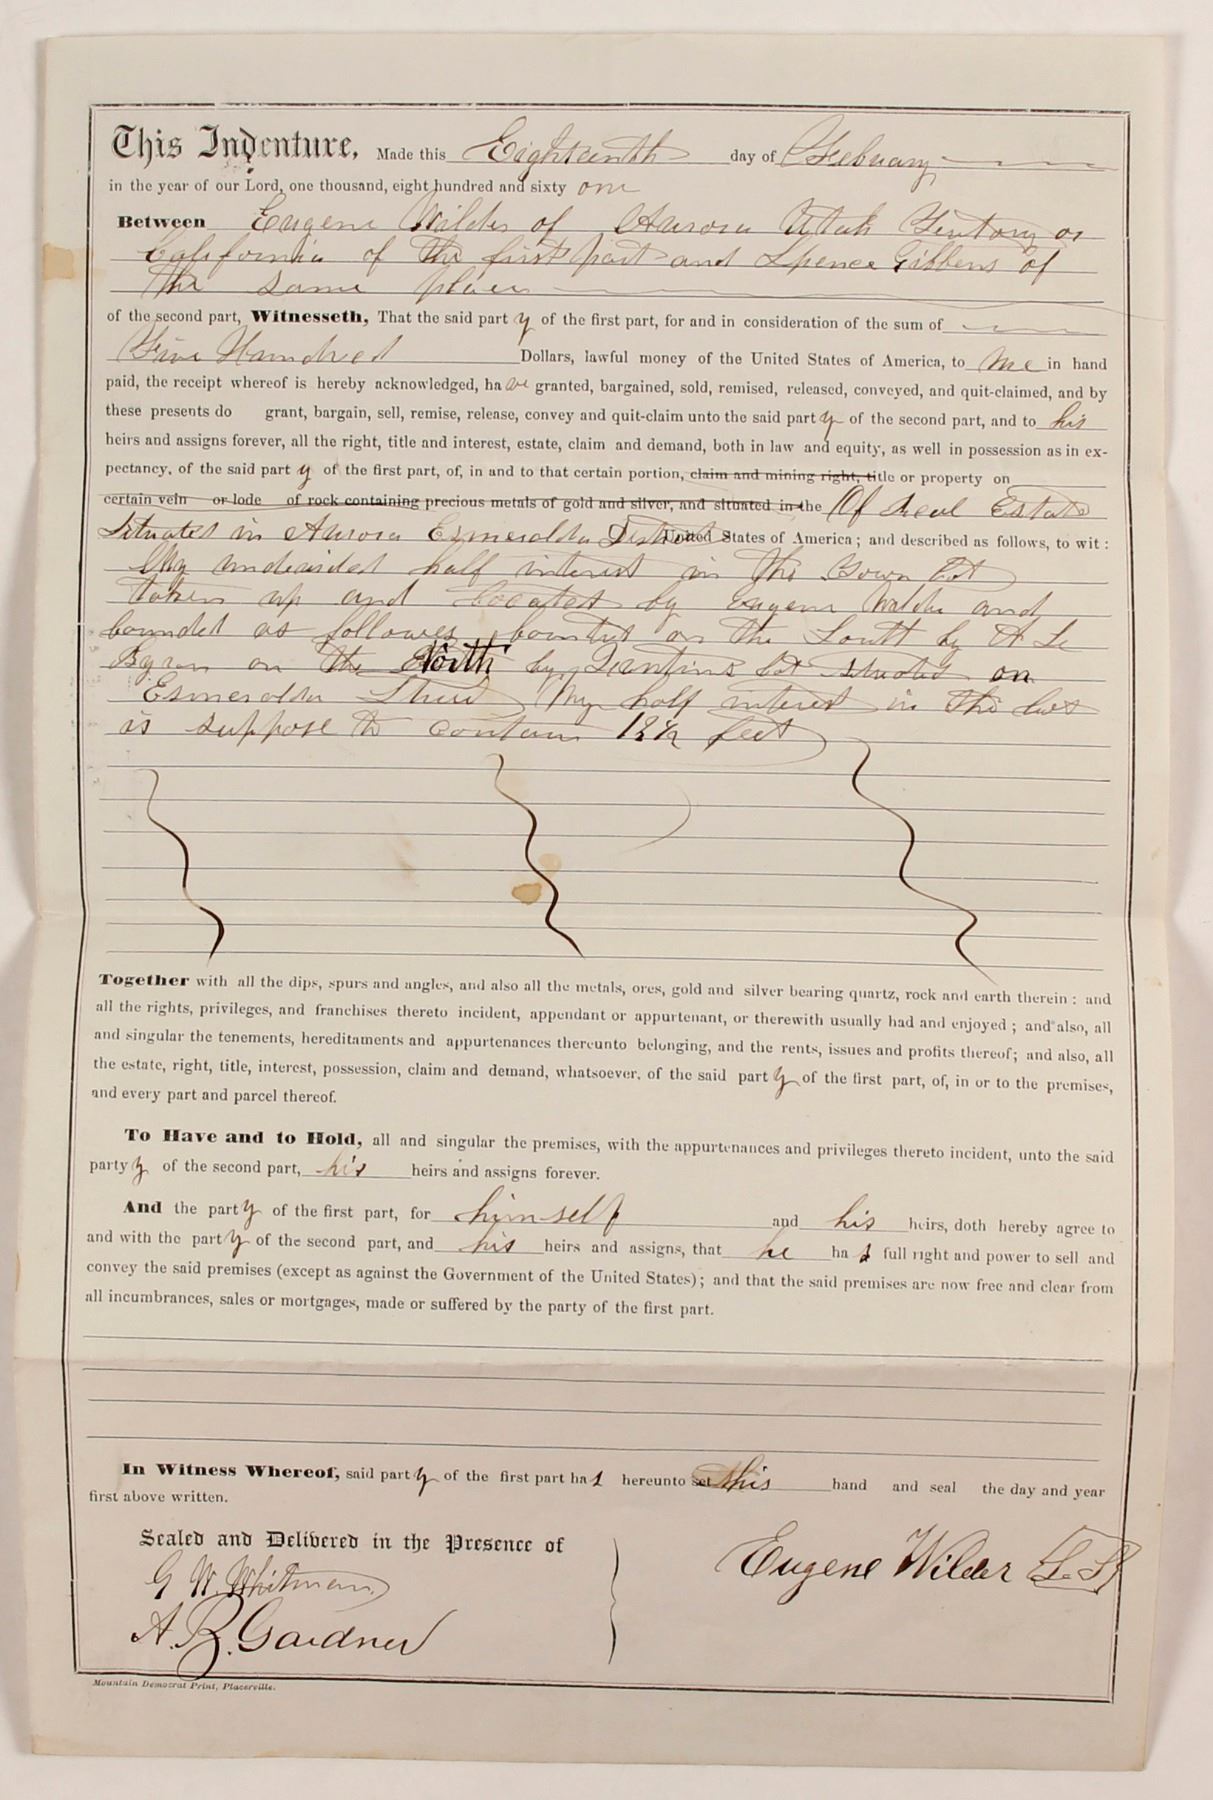 This Indenture, Made this Eighteenth day of February
in the year of our Lord, one thousand, eight hundred and sixty one
Between Eugene Wilder of Aurora Utah Teritory or
California of the first part and Spence Gibbens of
the same place
of the second part, Witnesseth, That the said part y of the first part, for and in consideration of the sum of
Five Hundred Dollars, lawful money of the United States of America, to me in hand
paid, the receipt whereof is hereby acknowledged, ha ve granted, bargained, sold, remised, released, conveyed, and quit-claimed, and by
these presents do grant, bargain, sell, remise, release, convey and quit-claim unto the said part y of the second part, and to his
heirs and assigns forever, all the right, title and interest, estate, claim and demand, both in law and equity, as well in possession as in ex-
pectancy, of the said part y of the first part, of, in and to that certain portion, claim and mining right, title or property on
certain vein or lode of rock containing precious metals of gold and silver, and situated in the Of Real Estate
Situated in Aurora Esmeralda District United States of America; and described as follows, to wit:
My undivided half interest in the Lot
taken up and Located by Eugene Wilder and
bounded as followes, on the South by A Le
Byron on the North by Lot situated on
Esmeralda Street My half interest in the Lot
is suppose to contain 18½ feet
Together with all the dips, spurs and angles, and also all the metals, ores, gold and silver bearing quartz, rock and earth therein: and
all the rights, privileges, and franchises thereto incident, appendant or appurtenant, or therewith usually had and enjoyed; and also, all
and singular the tenements, hereditaments and appurtenances thereunto belonging, and the rents, issues and profits thereof; and also, all
the estate, right, title, interest, possession, claim and demand, whatsoever, of the said part y of the first part, of, in or to the premises,
and every part and parcel thereof.
To Have and to Hold, all and singular the premises, with the appurtenances and privileges thereto incident, unto the said
party y of the second part, his heirs and assigns forever.
And the part y of the first part, for himself and his heirs, doth hereby agree to
and with the part y of the second part, and his heirs and assigns, that he ha s full right and power to sell and
convey the said premises (except as against the Government of the United States); and that the said premises are now free and clear from
all incumbrances, sales or mortgages, made or suffered by the party of the first part.
In Witness Whereof, said part y of the first part ha s hereunto set his hand and seal the day and year
first above written.
Sealed and Delivered in the Presence of
G W. Whitman
Eugene Wilder L. S.
A. B. Gardner
Mountain Democrat Print, Placerville.